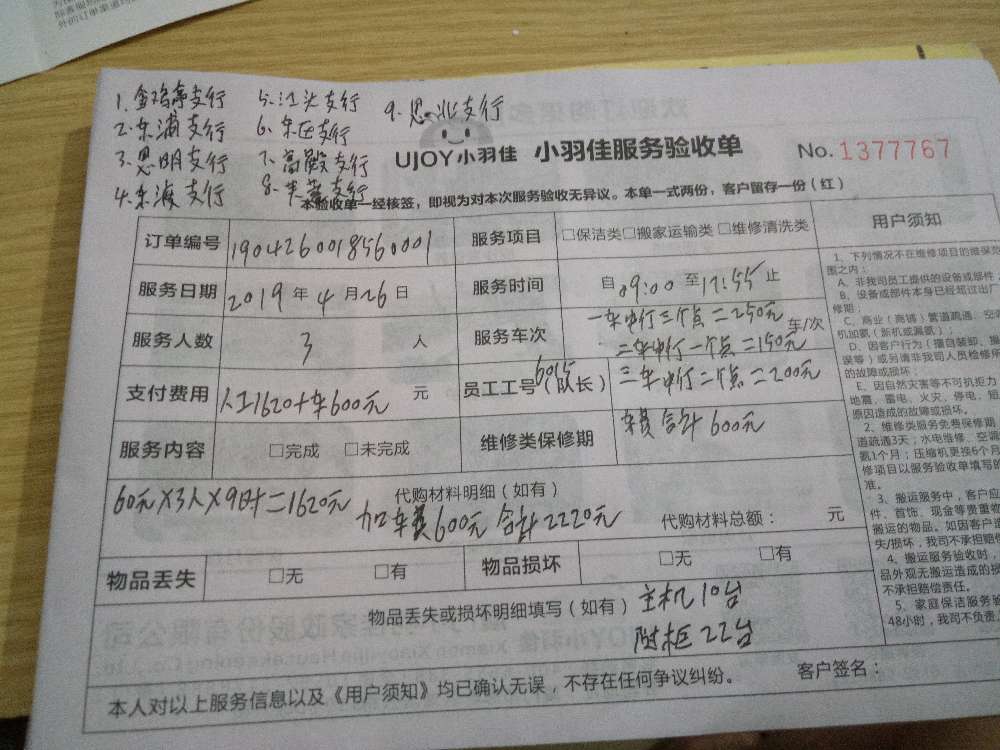 1.金鸡亭支行 5.江头支行 9.思北支行
2.东浦支行 6.东区支行
3.思明支行 7.高殿支行
4.东海支行 8.支行
UJOY小羽佳 小羽佳服务验收单 No.1377767
本验收单一经核签，即视为对本次服务验收无异议。本单一式两份，客户留存一份（红）
订单编号 1904260018560001 服务项目 □保洁类□搬家运输类□维修清洗类
服务日期 2019年4月26日 服务时间 自09:00至17:55止
服务人数 3人 服务车次 一车中行三个点=250元 车/次
二车中行一个点=150元
支付费用 人工1620+车600元 元 员工工号6015（队长） 三车中行二个点=200元
服务内容 □完成 □未完成 维修类保修期 车费合计600元
60元×3人×9时=1620元 代购材料明细（如有）
加车费600元 合计2220元 代购材料总额： 元
物品丢失 □无 □有 物品损坏 □无 □有
物品丢失或损坏明细填写（如有）主机10台
附柜22台
本人对以上服务信息以及《用户须知》均已确认无误，不存在任何争议纠纷。 客户签名：
用户须知
1、下列情况不在维修项目的维保范
围之内：
A、非我司员工提供的设备或部件
B、设备或部件本身已经超过出厂
修期；
C、商业（商铺）管道疏通、空
机加氨（新机或漏氨）；
D、因客户行为（擅自装卸、操
误等）或另请非我司人员检修所
的故障或损坏；
E、因自然灾害等不可抗拒力
地震、雷电、火灾、停电、短
原因造成的故障或损坏。
2、维修类服务免费保修期
道疏通3天；水电维修、空调
氨1个月；压缩机更换6个月
修项目以服务验收单填写的
准。
3、搬运服务中，客户应
件、首饰、现金等贵重物
搬运的物品。如因客户
失/损坏，我司不承担赔偿
4、搬运服务验收时，
品外观无搬运造成的损
不承担赔偿责任。
5、家庭保洁服务验
48小时，我司不负责